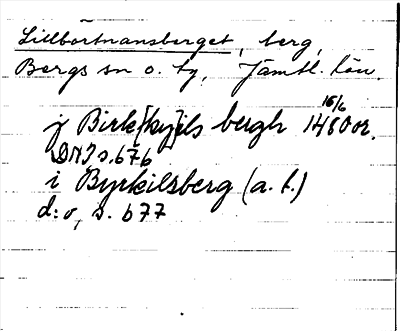 Lillbörtnansberget, berg,
Bergs sn o. tg, Jämtl. län.
j Birk[ky]ils bergh 16/6 1480 or.
DNJ s. 676
i Byrkilsberg (a. l.)
d:o, s. 677